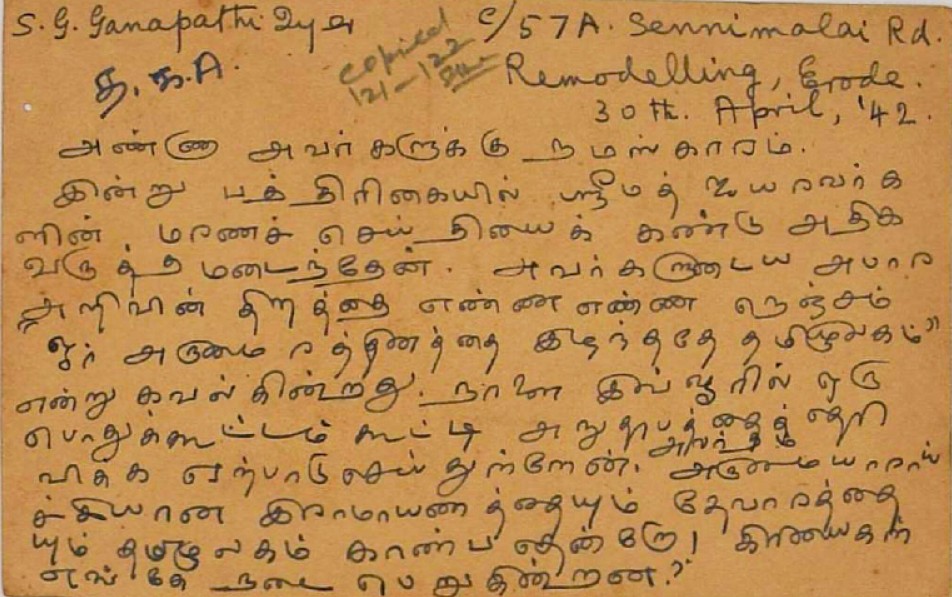 S. G. Ganapathi Iyer
C/57A. Sennimalai Rd.
Remodelling, Erode.
30th. April, '42.
copied
121-122
த. க. A.
அண்ணா அவர்களுக்கு நமஸ்காரம்.
இன்று பத்திரிகையில் ஸ்ரீமத் ஐயரவர்க
ளின் மரணச் செய்தியைக் கண்டு அதிக
வருத்தமடைந்தேன். அவர்களுடைய அபார
அறிவின் திறத்தை எண்ண எண்ண நெஞ்சம்
ஓர் அருமை ரத்தினத்தை இழந்ததே தமிழுலகம்"
என்று கவல்கின்றது. நாளை இவ்வூரில் ஒரு
பொதுக்கூட்டம் கூட்டி அநுதாபத்தைத் தெரி
விக்க ஏற்பாடு செய்துள்ளேன். அவர்தம்
அருமையாராய்
ச்சியான இராமாயணத்தையும் தேவாரத்தை
யும் தமிழுலகம் காண்ப தென்றோ! கிரியைகள்
எங்கே நடைபெறுகின்றன?